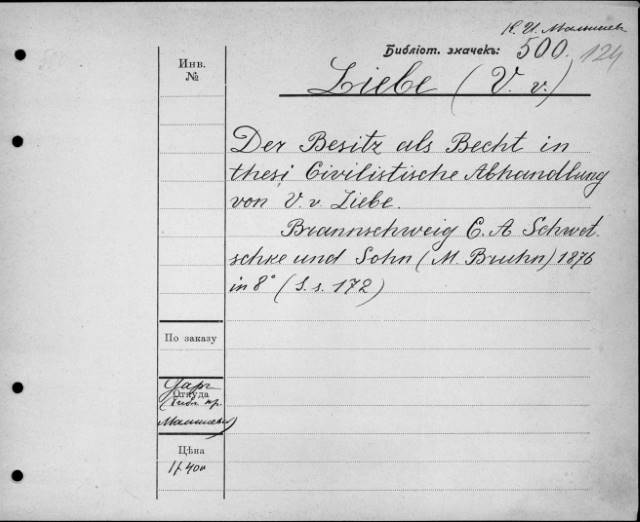 К. И. Малышев
Библіот. значекъ: 500. 124
Инв.
№
Liebe (V. v.)
Der Besitz als Becht in
thesi Civilistische Abhandlung
von V. v Liebe.
Brannschweig C. A Schwet.
schke und Sohn (M. Bruhn) 1876
in 8° (S. s. 172)
По заказу
Даръ
Откуда
Малышева)
Цѣна